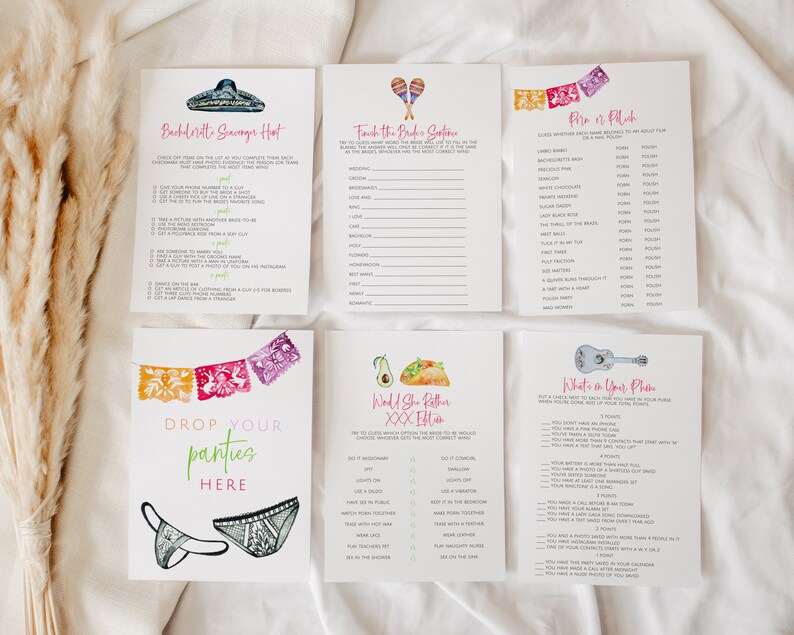 Bachelorette Scavenger Hunt
CHECK OFF ITEMS ON THE LIST AS YOU COMPLETE THEM. EACH
CHECKMARK MUST HAVE PHOTO EVIDENCE. THE PERSON (OR TEAM)
THAT COMPLETES THE MOST ITEMS WINS!
1 point
GIVE YOUR PHONE NUMBER TO A GUY
GET SOMEONE TO BUY THE BRIDE A SHOT
USE A CHEESY PICK UP LINE ON A STRANGER
GET THE DJ TO PLAY THE BRIDE'S FAVORITE SONG
points
TAKE A PICTURE WITH ANOTHER BRIDE-TO-BE
USE THE MEN'S RESTROOM
PHOTOBOMB SOMEONE
GET A PIGGYBACK RIDE FROM A SEXY GUY
points
ASK SOMEONE TO MARRY YOU
FIND A GUY WITH THE GROOM'S NAME
TAKE A PICTURE WITH A MAN IN UNIFORM
GET A GUY TO POST A PHOTO OF YOU ON HIS INSTAGRAM
points
DANCE ON THE BAR
GET AN ARTICLE OF CLOTHING FROM A GUY (+5 FOR BOXERS)
GET THREE GUYS' PHONE NUMBERS
GET A LAP DANCE FROM A STRANGER
Finish the Bride's Sentence
TRY TO GUESS WHAT WORD THE BRIDE WILL USE TO FILL IN THE
BLANKS. THE ANSWER WILL ONLY BE CORRECT IF IT IS THE SAME
AS THE BRIDE'S. WHOEVER HAS THE MOST CORRECT WINS!
WEDDING
GROOM
BRIDESMAIDS
LOVE AND
RING
I LOVE
CAKE
BACHELOR
HOLY
FLOWERS
HONEYMOON
BEST MAN'S
FIRST
NEWLY
ROMANTIC
Porn or Polish
GUESS WHETHER EACH NAME BELONGS TO AN ADULT FILM
OR A NAIL POLISH.
LIMBO BIMBO PORN POLISH
BACHELORETTE BASH PORN POLISH
PRECIOUS PINK PORN POLISH
SEXAGON PORN POLISH
WHITE CHOCOLATE PORN POLISH
PRIVATE WEEKEND PORN POLISH
SUGAR DADDY PORN POLISH
LADY BLACK ROSE PORN POLISH
THE THRILL OF THE BRAZIL PORN POLISH
MEET BALLS PORN POLISH
TUCK IT IN MY TUX PORN POLISH
FIRST TIMER PORN POLISH
PULP FRICTION PORN POLISH
SIZE MATTERS PORN POLISH
A QUIVER RUNS THROUGH IT PORN POLISH
A TART WITH A HEART PORN POLISH
POLISH PARTY PORN POLISH
MAD WOMEN PORN POLISH
DROP YOUR
panties
HERE
Would She Rather
XXX Edition
TRY TO GUESS WHICH OPTION THE BRIDE-TO-BE WOULD
CHOOSE. WHOEVER GETS THE MOST CORRECT WINS!
DO IT MISSIONARY DO IT COWGIRL
SPIT SWALLOW
LIGHTS ON LIGHTS OFF
USE A DILDO USE A VIBRATOR
HAVE SEX IN PUBLIC KEEP IT IN THE BEDROOM
WATCH PORN TOGETHER MAKE PORN TOGETHER
TEASE WITH HOT WAX TEASE WITH A FEATHER
WEAR LACE WEAR LEATHER
PLAY TEACHER'S PET PLAY NAUGHTY NURSE
SEX IN THE SHOWER SEX ON THE SINK
What's on Your Phone
PUT A CHECK NEXT TO EACH ITEM YOU HAVE IN YOUR PURSE.
WHEN YOU'RE DONE, ADD UP YOUR TOTAL POINTS.
5 POINTS
YOU DON'T HAVE AN IPHONE
YOU HAVE A PINK PHONE CASE
YOU'VE TAKEN A SELFIE TODAY
YOU HAVE MORE THAN 9 CONTACTS THAT START WITH "M"
YOU HAVE A TEXT THAT SAYS, "YOU UP?"
4 POINTS
YOUR BATTERY IS MORE THAN HALF FULL
YOU HAVE A PHOTO OF A SHIRTLESS GUY SAVED
YOU'VE SEXTED SOMEONE
YOU HAVE AT LEAST ONE REMINDER SET
YOUR RINGTONE IS A SONG
3 POINTS
YOU MADE A CALL BEFORE 8 AM TODAY
YOU HAVE YOUR ALARM SET
YOU HAVE A LADY GAGA SONG DOWNLOADED
YOU HAVE A TEXT SAVED FROM OVER 1 YEAR AGO
2 POINTS
YOU AND A PHOTO SAVED WITH MORE THAN 4 PEOPLE IN IT
YOU HAVE INSTAGRAM INSTALLED
ONE OF YOUR CONTACTS STARTS WITH A W, Y, OR Z
1 POINT
YOU HAVE THIS PARTY SAVED IN YOUR CALENDAR
YOU HAVE MADE A CALL AFTER MIDNIGHT
YOU HAVE A NUDE PHOTO OF YOU SAVED